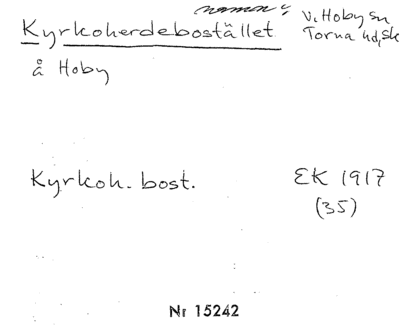 namn:
Kyrkoherdebostället
V. Hoby sn
Torna hd, Sk
å Hoby
Kyrkoh. bost.
EK 1917
(35)
Nr 15242